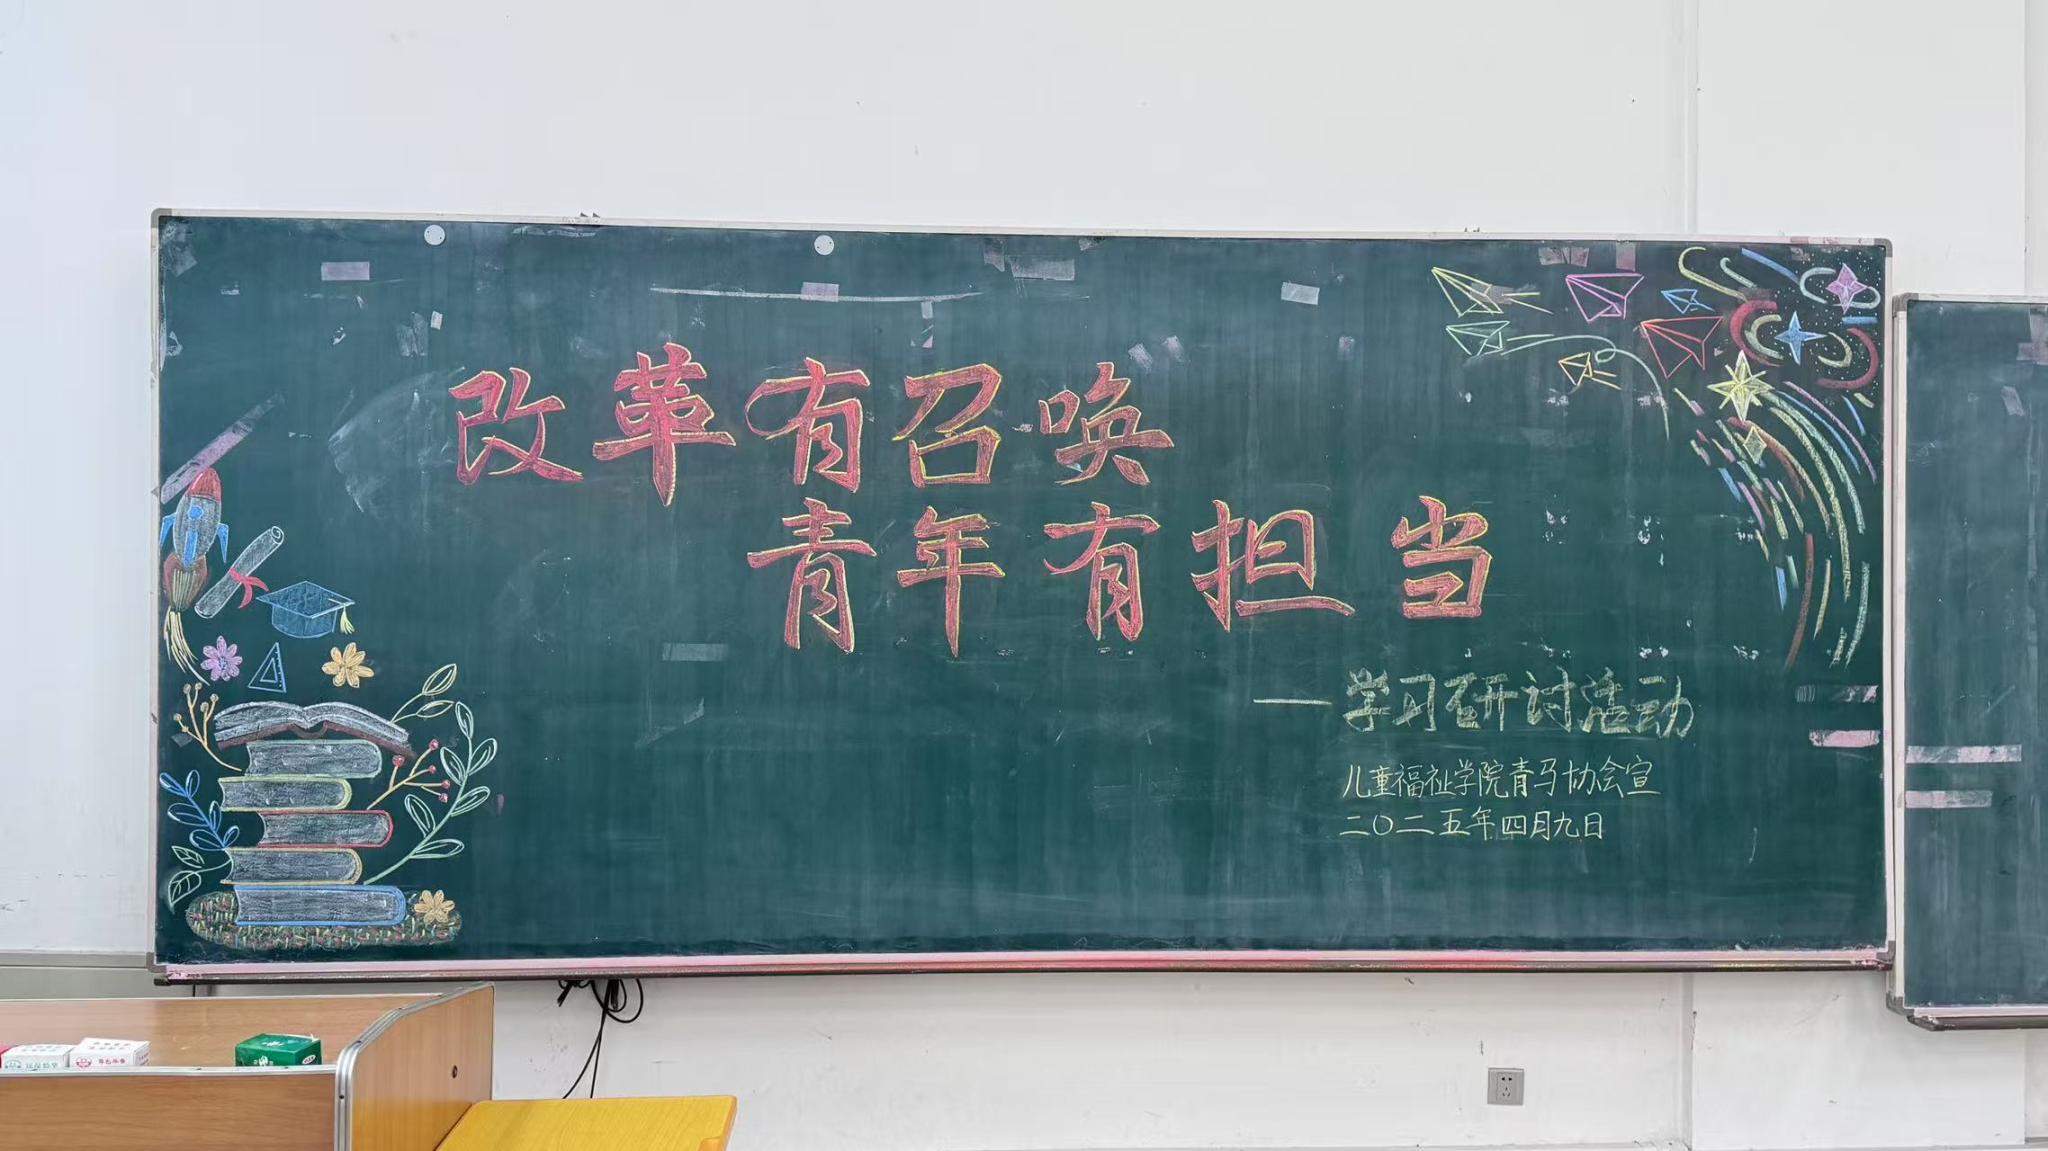 改革有召唤
青年有担当
——学习研讨活动
儿童福祉学院青马协会宣
二〇二五年四月九日